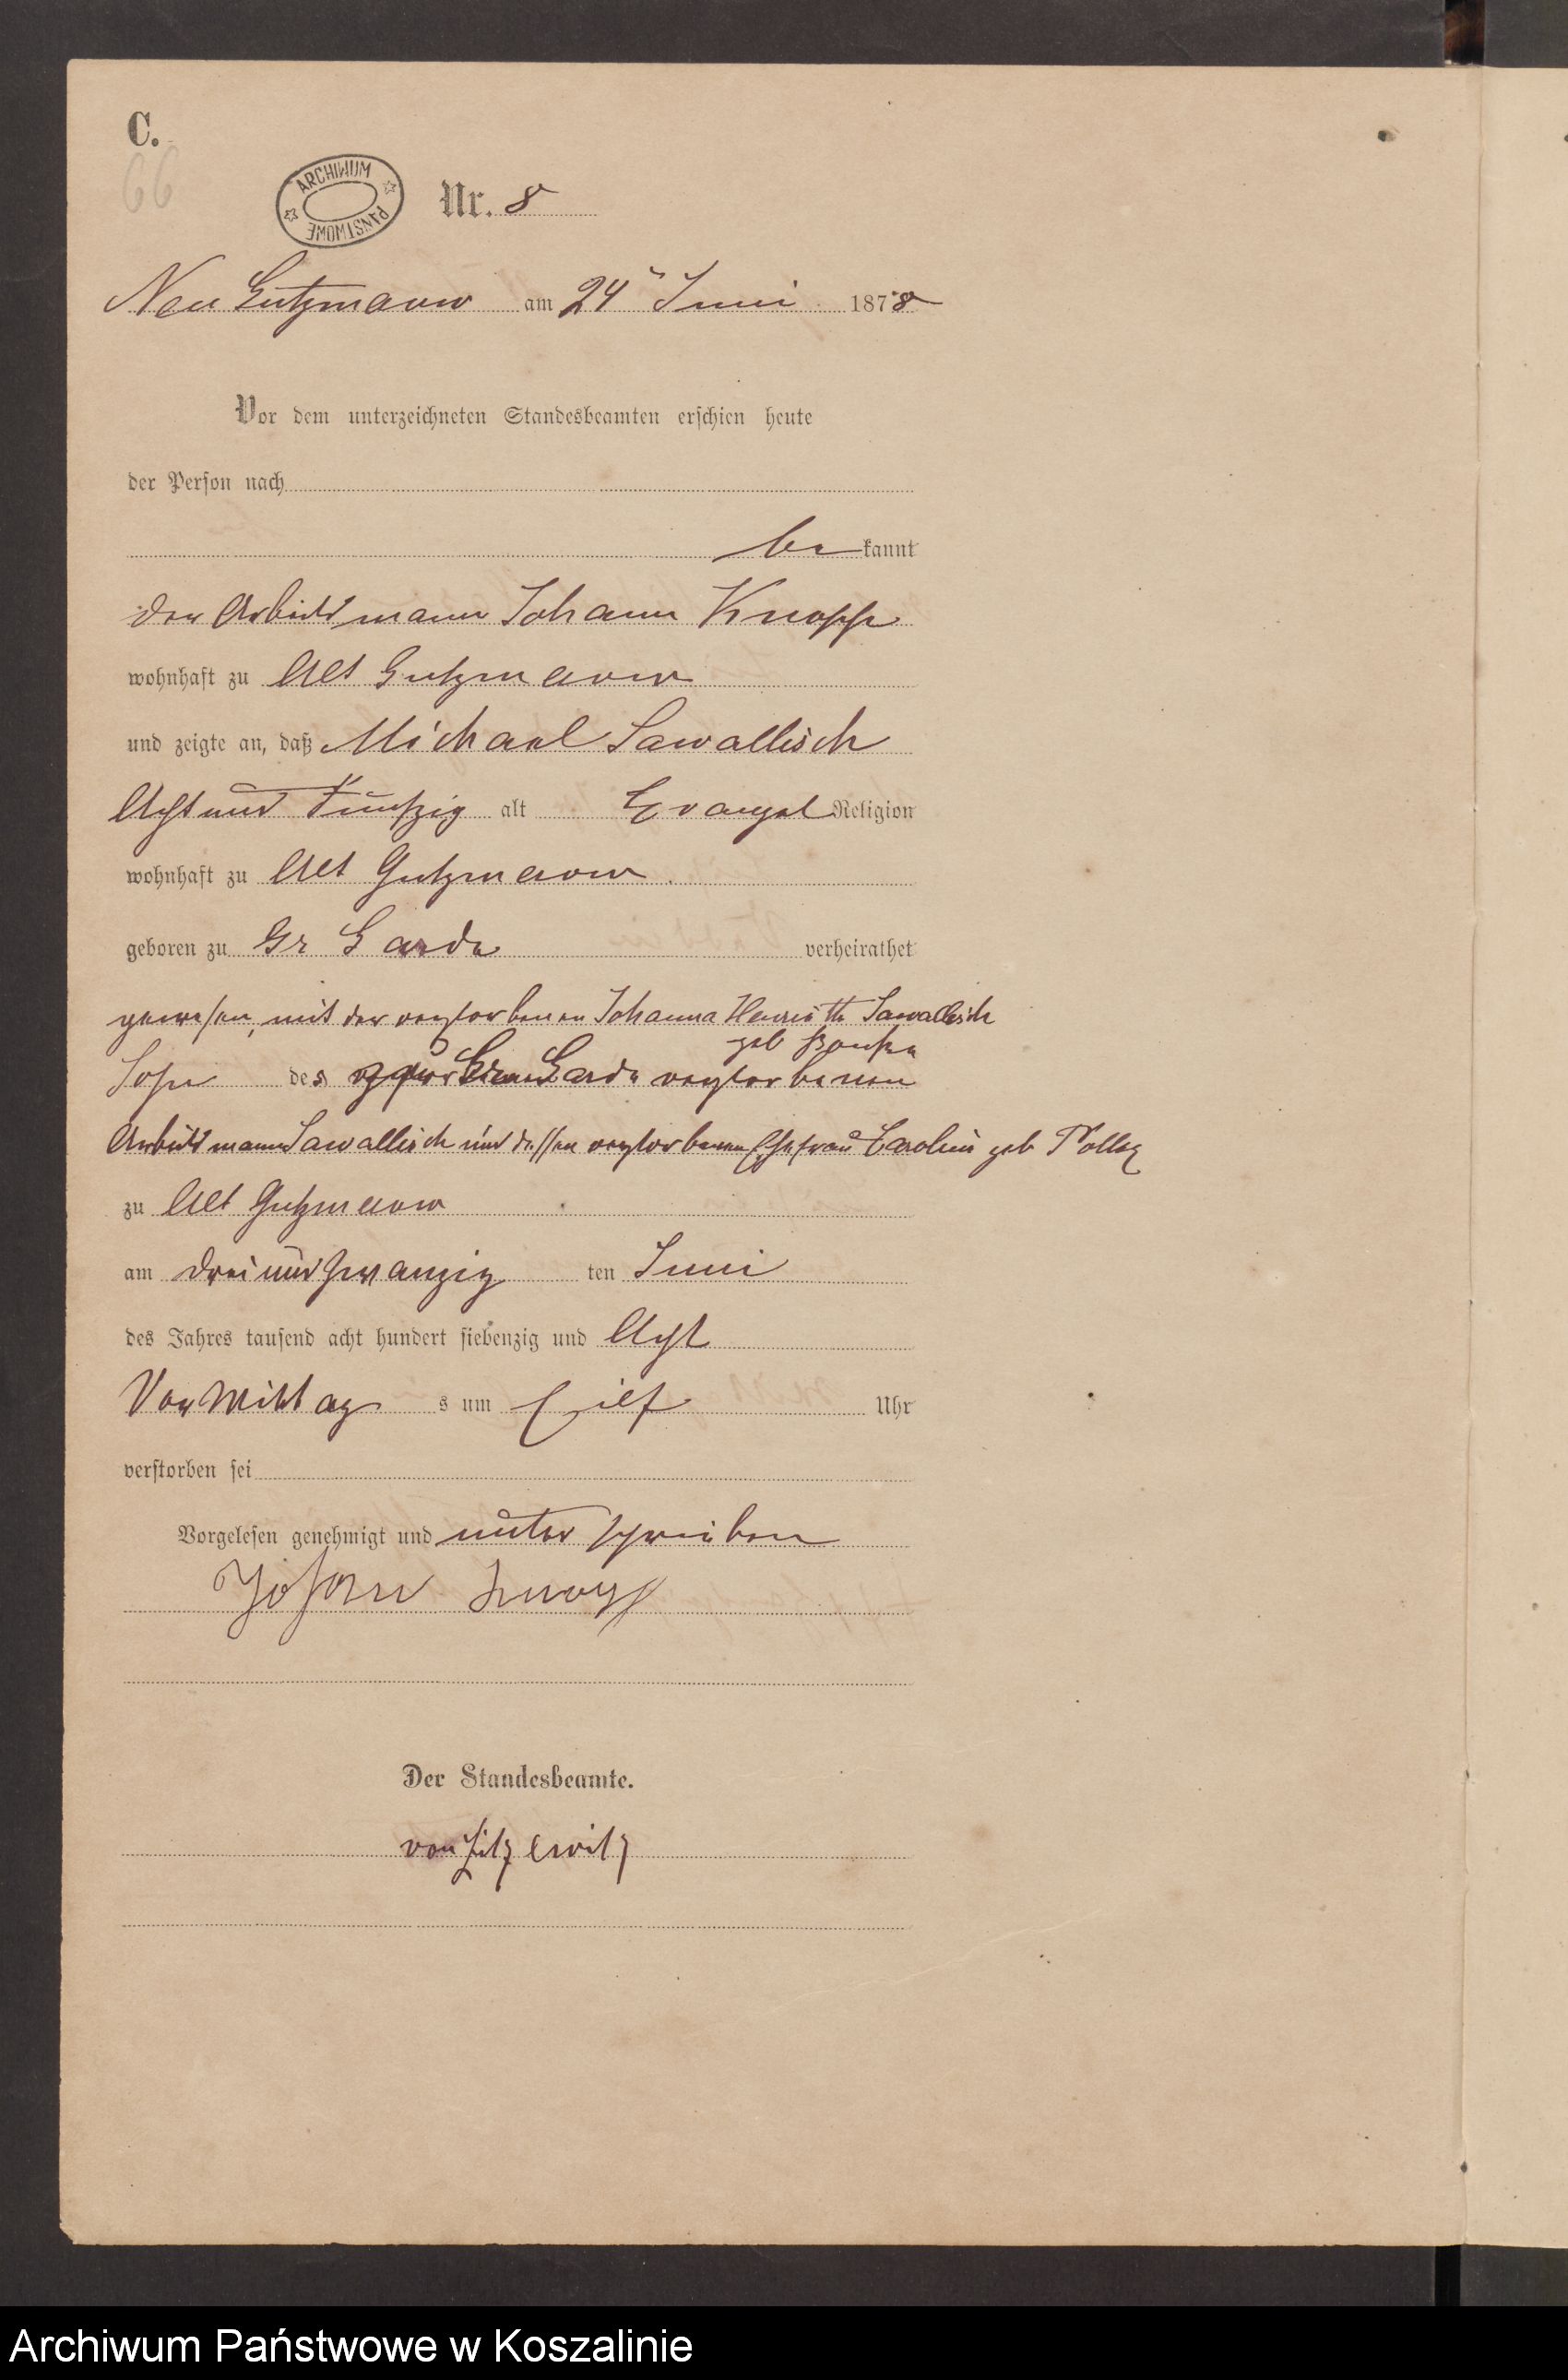 C.
66
ARCHIWUM PAŃSTWOWE
Nr. 8
Neu Gutzmerow am 24 Juni 1878
Vor dem unterzeichneten Standesbeamten erschien heute
der Person nach
be kannt
der Arbeitsmann Johann Knopp
wohnhaft zu Alt Gutzmerow
und zeigte an, daß Michael Sawallisch
Acht und Fünfzig alt Evangel Religion
wohnhaft zu Alt Gutzmerow
geboren zu Gr Garde verheirathet
gewesen, mit der verstorbenen Johanna Henriette Sawallisch
geb
Sohn des zu Garde verstorbenen
Arbeitsmann Sawallisch und dessen verstorbenen Ehefrau Caroline geb
zu Alt Gutzmerow
am drei und zwanzig ten Juni
des Jahres tausend acht hundert siebenzig und Acht
Vor Mittag s um Eilf Uhr
verstorben sei
Vorgelesen genehmigt und unterschrieben
Johann Knopp
Der Standesbeamte.
von Zitzewitz
Archiwum Państwowe w Koszalinie